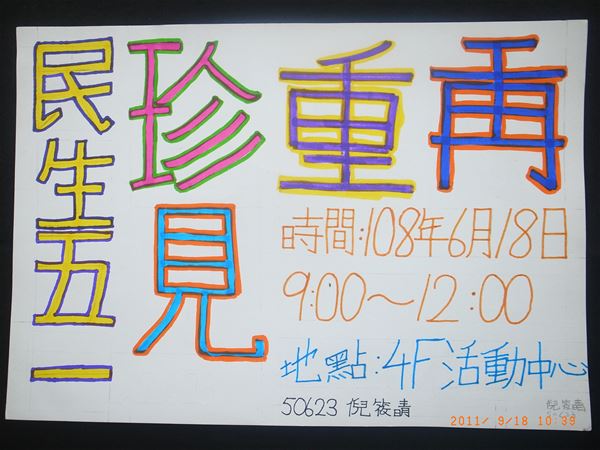 民生五一
珍重再
見
時間:108年6月18日
9:00～12:00
地點:4F活動中心
50623 倪筱晴
倪筱晴
2011/ 9/18 10:39